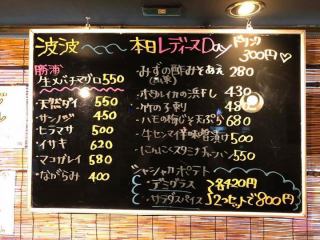 波波〜本日レディースDay ドリンク300円♡
勝浦
生メバチマグロ 550
・天然ダイ 550
・サンノジ 450
・ヒラマサ 500
・イサキ 620
・マコガレイ 580
・ながらみ 400
・みずの酢みそあえ 280
・ホタルイカの沖干し 430
・竹の子刺 480
・ハモの梅じそ天ぷら 680
・牛センマイ辛味噌漬け 500
・にんにくスタミナチャーハン 550
・ジャンカポテト
・デミグラス 各420円
・サラダスパイス 2つセットで800円